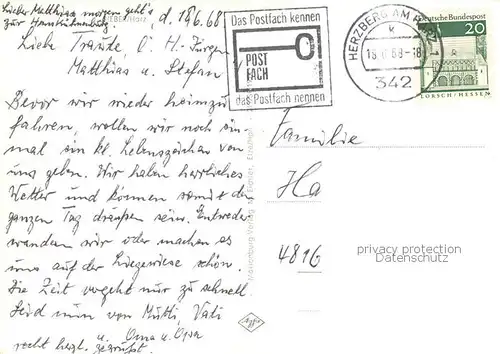 Lieber Matthias morgen geht's
zur Hanskühnenburg.
SIEBER/Harz
d. 18.6.68
Liebe Traute, H-Jürgen
Matthias u. Stefan
Bevor wir wieder heimzu
fahren, wollen wir noch ein
mal ein kl. Lebenszeichen von
uns geben. Wir haben herrliches
Wetter und können somit den
ganzen Tag draußen sein. Entweder
wandern wir oder machen es
uns auf der Liegewiese schön.
Die Zeit vergeht nur zu schnell.
Seid nun von Mutti, Vati
u. Oma u. Opa
recht herzl. gegrüßt.
Das Postfach kennen
POST
FACH
das Postfach nennen
HERZBERG AM
18.6.68-18
342
Deutsche Bundespost
20
LORSCH/HESSEN
Familie
Ha
4816
privacy protection
Datenschutz
Agfa